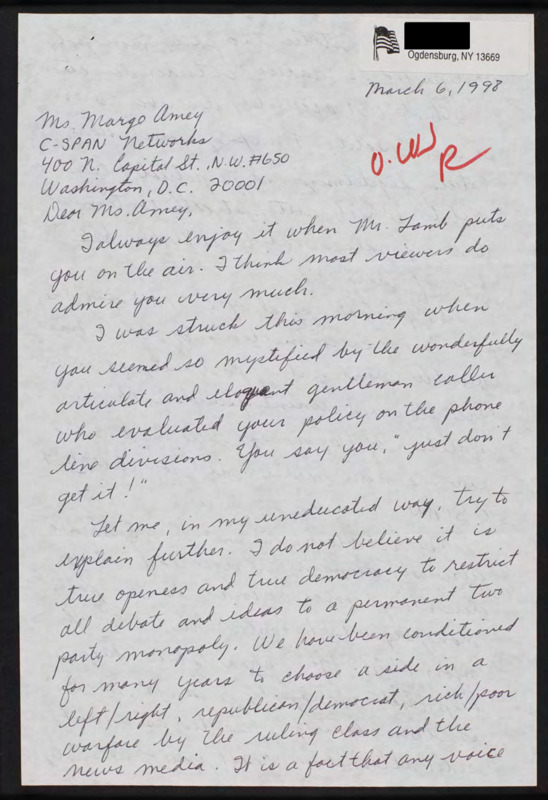 Ogdensburg, NY 13669
March 6, 1998
Ms. Margo Amey
C-SPAN Networks
400 N. Capital St., N.W. #650
Washington, D.C. 20001
O.W
R
Dear Ms. Amey,
I always enjoy it when Mr. Lamb puts
you on the air. I think most viewers do
admire you very much.
I was struck this morning when
you seemed so mystified by the wonderfully
articulate and eloquent gentleman caller
who evaluated your policy on the phone
line divisions. You say you, "just don't
get it!"
Let me, in my uneducated way, try to
explain further. I do not believe it is
true openess and true democracy to restrict
all debate and ideas to a permanent two
party monopoly. We have been conditioned
for many years to choose a side in a
left/right, republican/democrat, rich/poor
warfare by the ruling class and the
news media. It is a fact that any voice